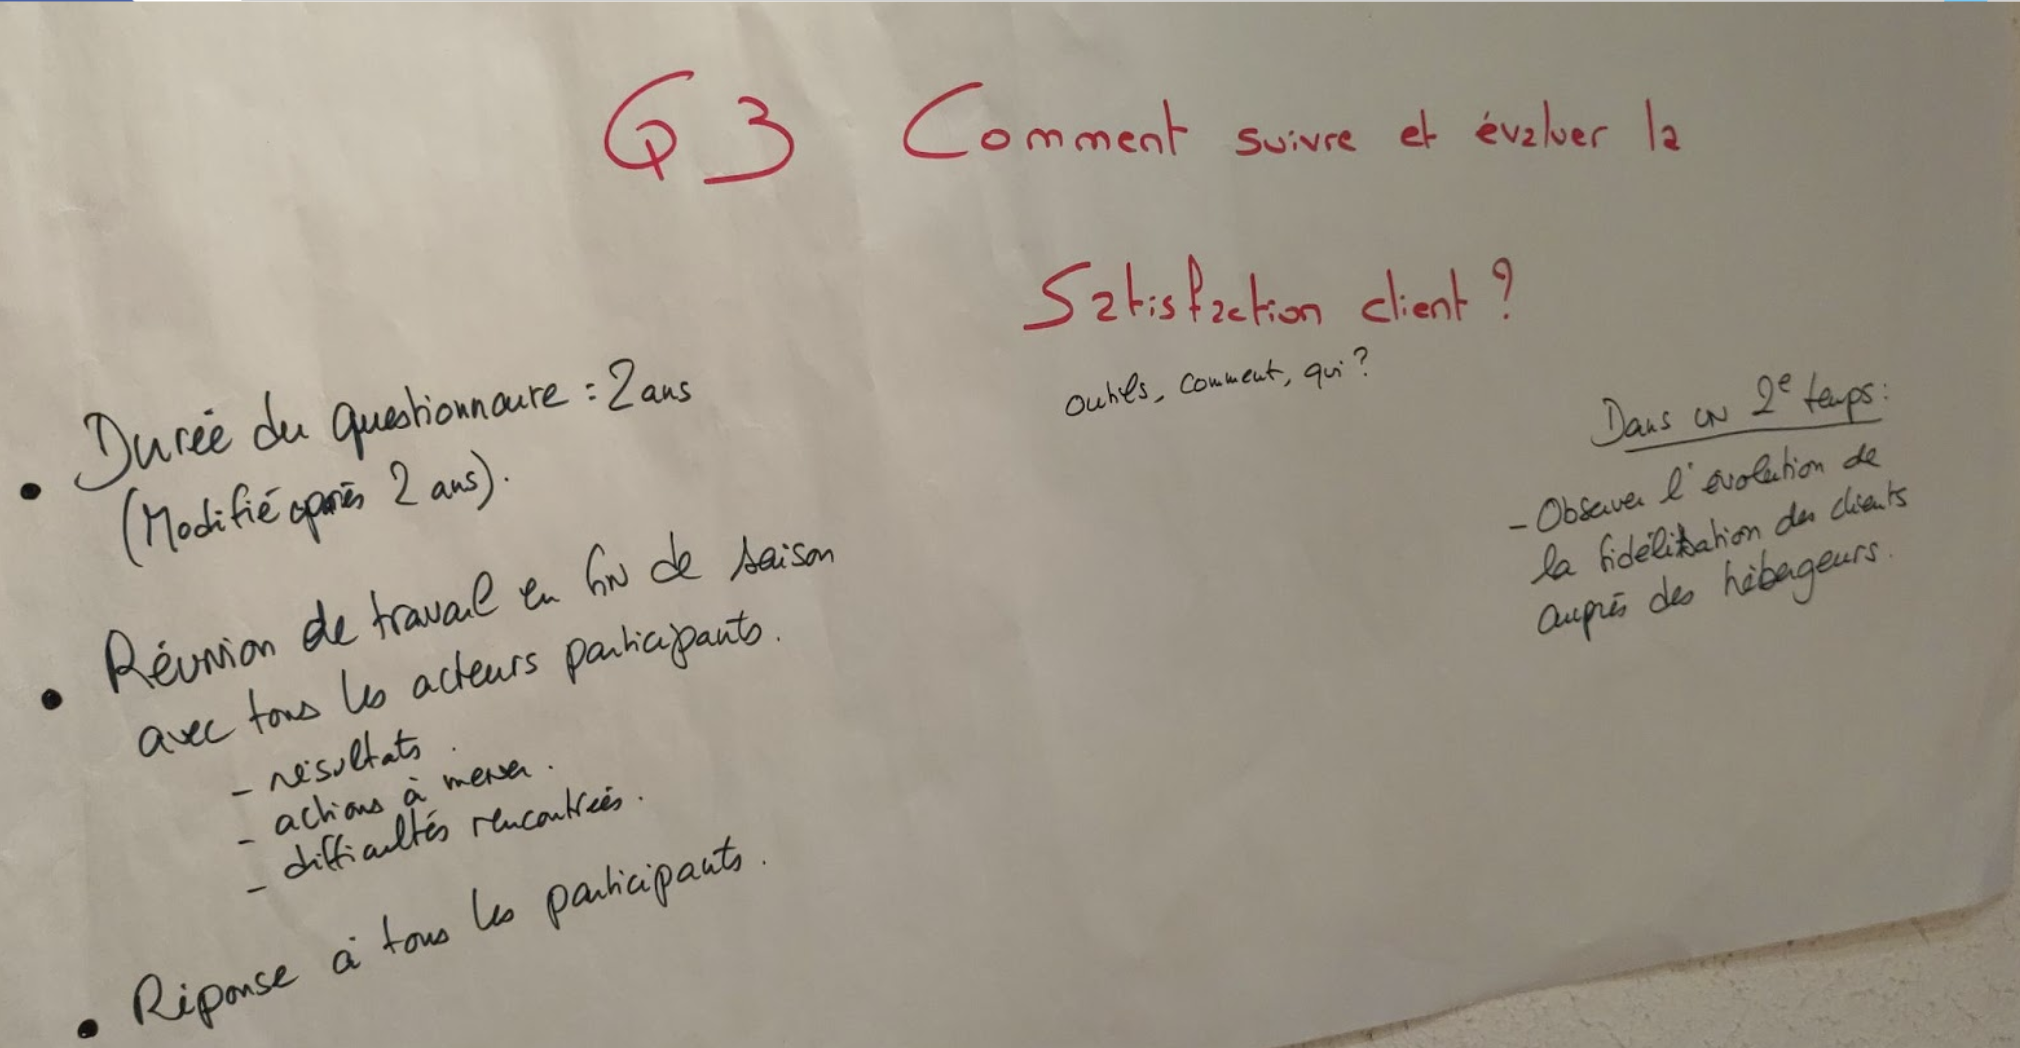 Q3 Comment suivre et évaluer la
Satisfaction client ?
outils, comment, qui ?
• Durée du questionnaire : 2 ans
(Modifié après 2 ans).
• Réunion de travail en fin de saison
avec tous les acteurs participants.
- résultats.
- actions à mener.
- difficultés rencontrées.
• Réponse à tous les participants.
Dans un 2e temps :
- Observer l'évolution de
la fidélisation des clients
auprès des hébergeurs.